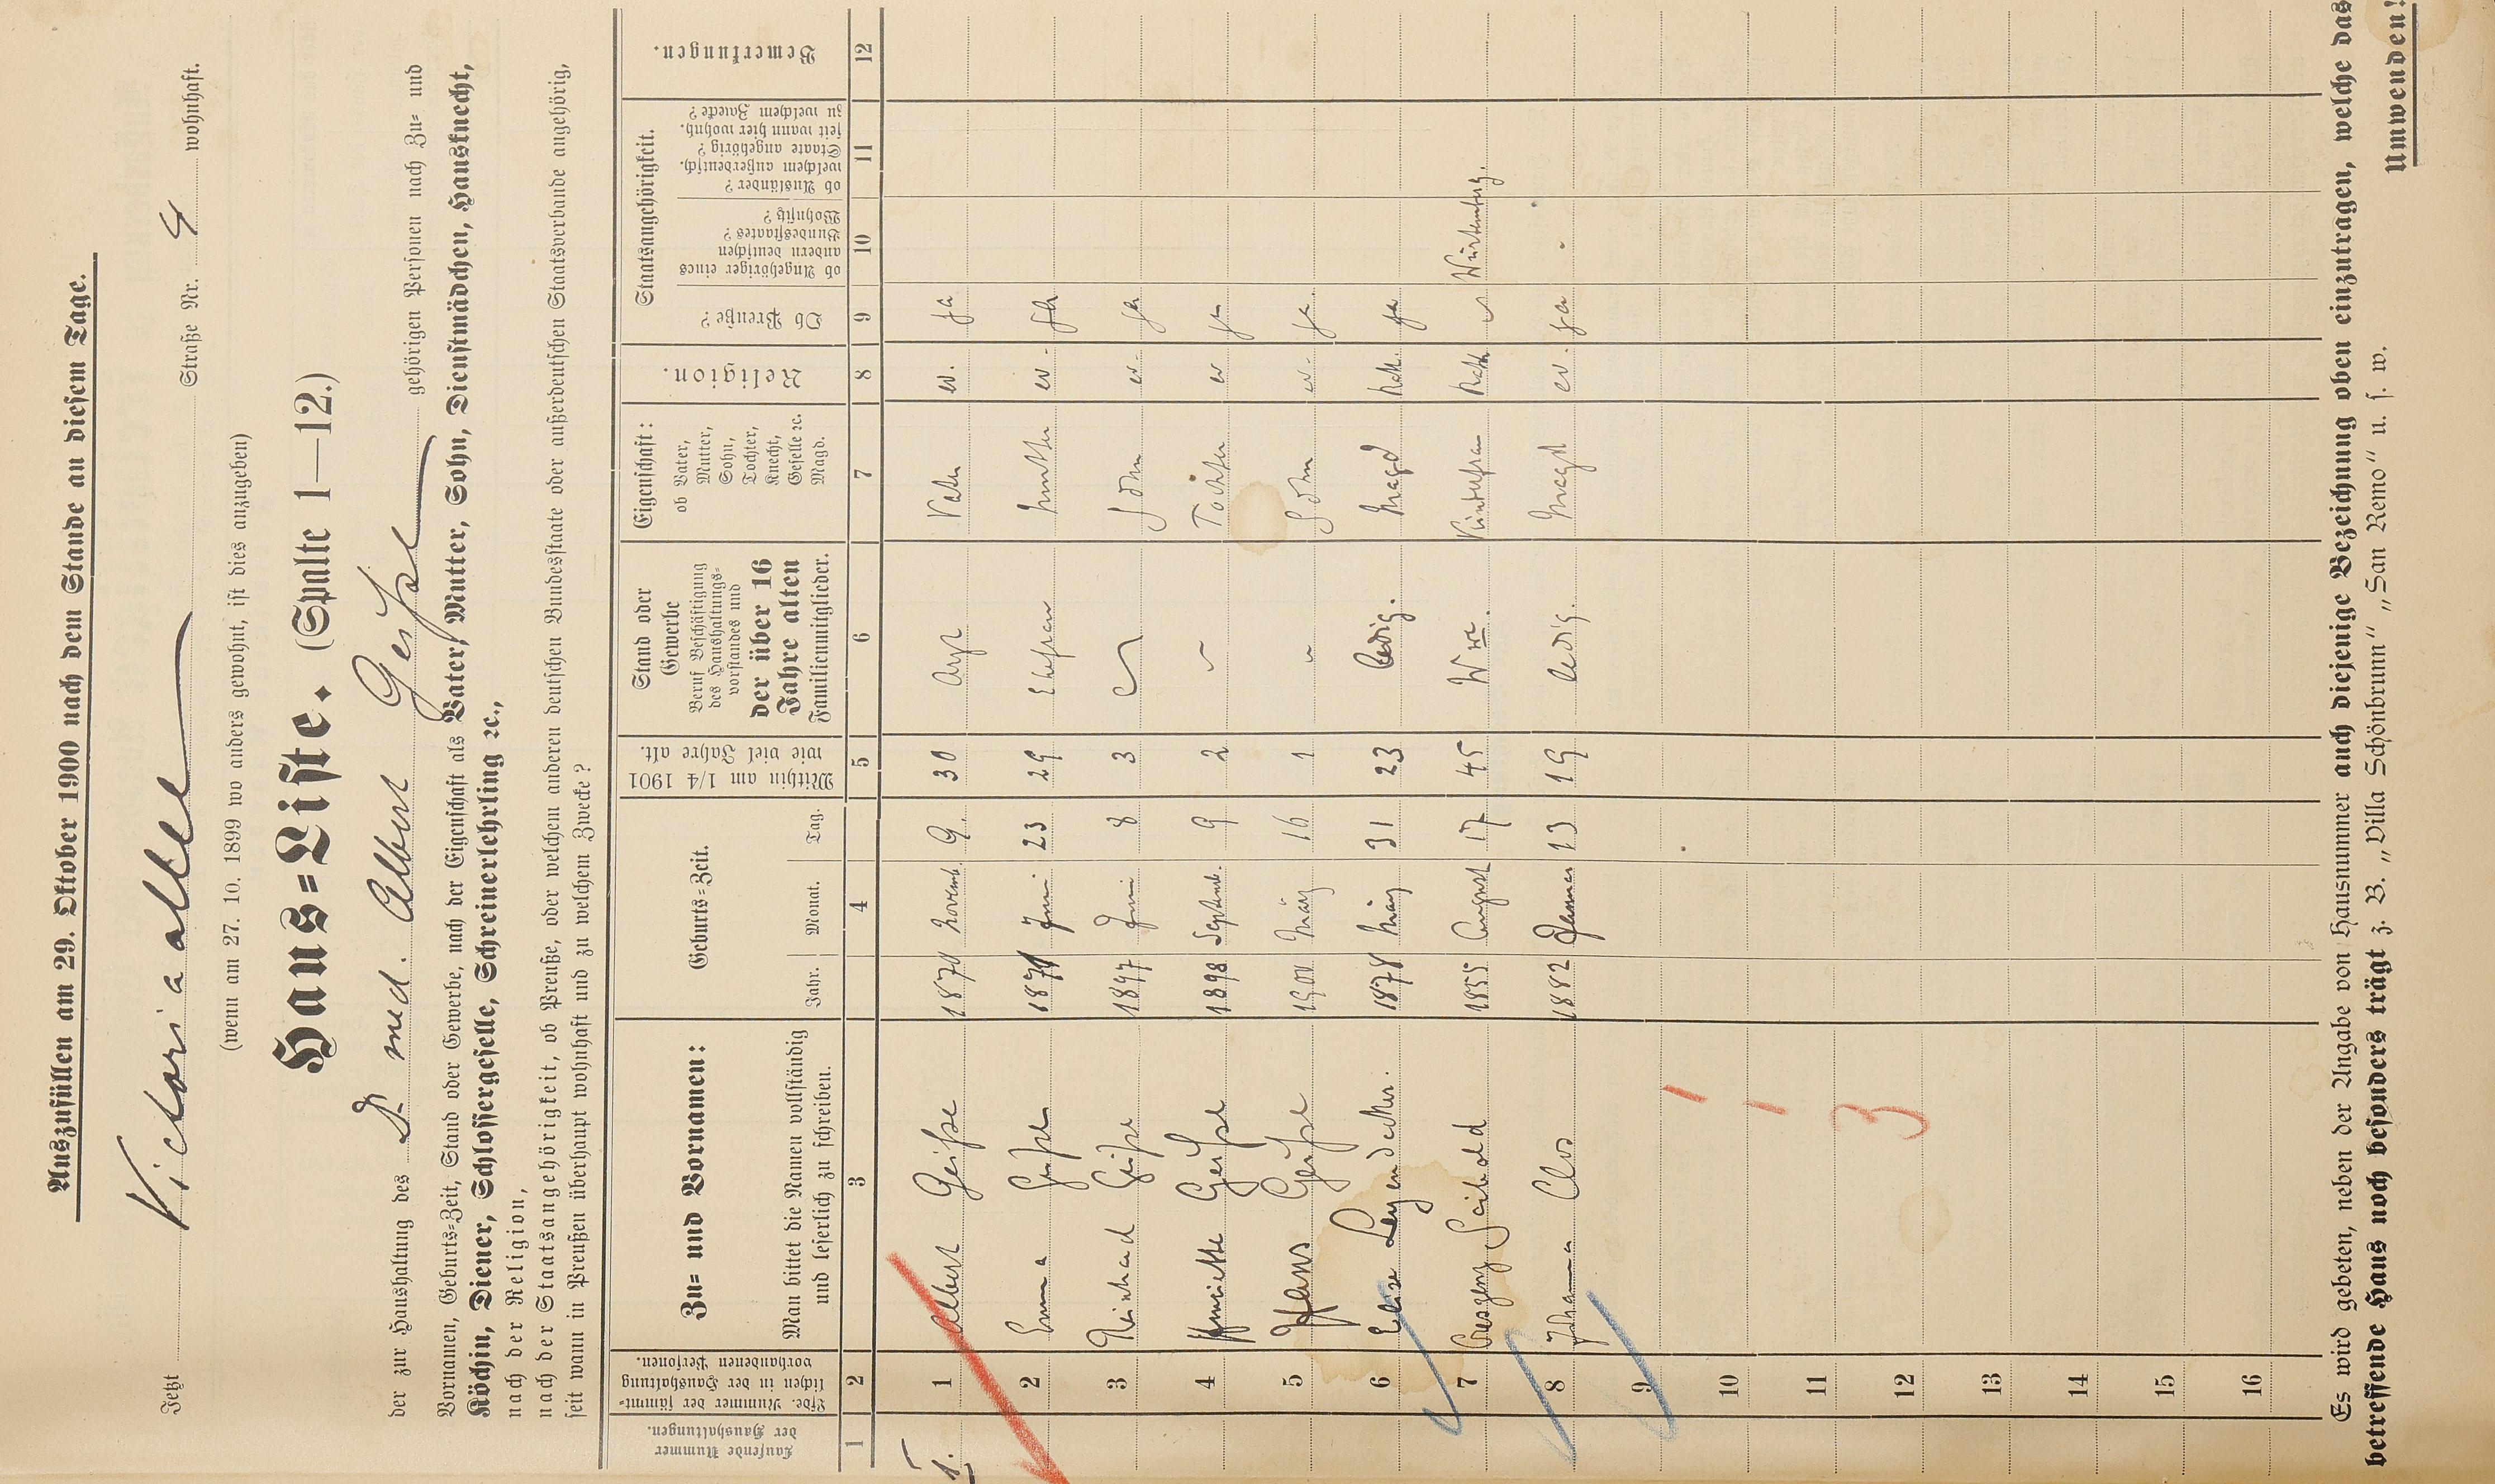 Auszufüllen am 29. Oktober 1900 nach dem Stande an diesem Tage.
Jetzt Victoria allee Straße Nr. 4 wohnhaft.
(wenn am 27. 10. 1899 wo anders gewohnt, ist dies anzugeben)
Haus=Liste. (Spalte 1—12.)
der zur Haushaltung des Dr. med. Albert Geißel gehörigen Personen nach Zu= und
Vornamen, Geburts=Zeit, Stand oder Gewerbe, nach der Eigenschaft als Vater, Mutter, Sohn, Dienstmädchen, Hausknecht,
Köchin, Diener, Schlossergeselle, Schreinerlehrling ꝛc.,
nach der Religion,
nach der Staatsangehörigkeit, ob Preuße, oder welchem anderen deutschen Bundesstaate oder außerdeutschen Staatsverbande angehörig,
seit wann in Preußen überhaupt wohnhaft und zu welchem Zwecke?
Laufende Nummer der Haushaltungen.
Lfde. Nummer der sämmtlichen in der Haushaltung vorhandenen Personen.
Zu= und Vornamen:
Man bittet die Namen vollständig
und leserlich zu schreiben.
Geburts=Zeit.
Jahr. Monat. Tag.
Mithin am 1/4 1901
wie viel Jahre alt.
Stand oder
Gewerbe
Beruf Beschäftigung
des Haushaltungs=
vorstandes und
der über 16
Jahre alten
Familienmitglieder.
Eigenschaft:
ob Vater,
Mutter,
Sohn,
Tochter,
Knecht,
Geselle ꝛc.
Magd.
Religion.
Staatsangehörigkeit.
Ob Preuße?
ob Angehöriger eines
andern deutschen
Bundesstaates?
Wohnsitz?
ob Ausländer?
welchem außerdeutsch.
Staate angehörig?
seit wann hier wohnh.
zu welchem Zwecke?
Bemerkungen.
1 2 3 4 5 6 7 8 9 10 11 12
1. 1 Albert Geißel 1870 Novemb. 9. 30 Arzt Vater ev. Ja
2 Emma Geißel 1871 Juni 23 29 Ehefrau Mutter ev. Ja
3 Reinhard Geißel 1897 Juni 8 3 Sohn ev. Ja
4 Henriette Geißel 1898 Septemb. 9 2 " Tochter ev Ja
5 Hans Geißel 1900 März 16 1 " Sohn ev. Ja.
6 Elise Leyendecker. 1878 März 31 23 ledig. Magd kath. Ja
7 Creszenz Seibold 1855 August 17 45 Wwe. Kinderfrau kath Würtemberg.
8 Johanna Clos 1882 Januar 13 19 ledig. Magd ev. Ja
9
10
11
12
13
14
15
16
1
1
3
Es wird gebeten, neben der Angabe von Hausnummer auch diejenige Bezeichnung oben einzutragen, welche das
betreffende Haus noch besonders trägt z. B. „Villa Schönbrunn“ „San Remo“ u. s. w.
Umwenden!